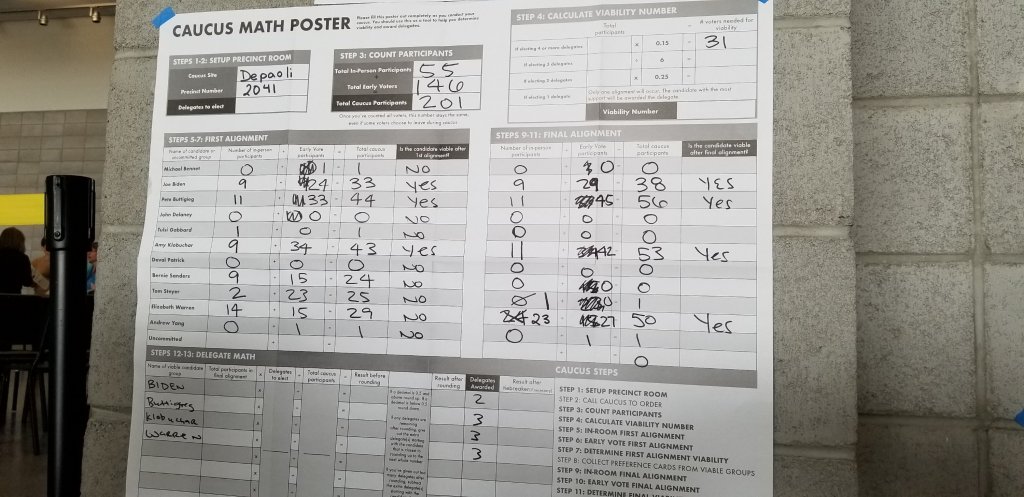 CAUCUS MATH POSTER
Please fill this poster out completely as you conduct your
caucus. You should use this as a tool to help you determine
viability and award delegates.
STEPS 1-2: SETUP PRECINCT ROOM
Caucus Site Depaoli
Precinct Number 2041
Delegates to elect
STEP 3: COUNT PARTICIPANTS
Total In-Person Participants 55
Total Early Voters 146
Total Caucus Participants 201
Once you've counted all voters, this number stays the same,
even if some voters choose to leave during caucus
STEP 4: CALCULATE VIABILITY NUMBER
Total participants = # voters needed for viability
If electing 4 or more delegates x 0.15 = 31
If electing 3 delegates ÷ 6 =
If electing 2 delegates x 0.25 =
If electing 1 delegate Only one alignment will occur. The candidate with the most
support will be awarded the delegate
Viability Number
STEPS 5-7: FIRST ALIGNMENT
Name of candidate or uncommitted group Number of in-person participants Early Vote participants Total caucus participants Is the candidate viable after 1st alignment?
Michael Bennet 0 1 1 NO
Joe Biden 9 24 33 Yes
Pete Buttigieg 11 33 44 Yes
John Delaney 0 0 0 NO
Tulsi Gabbard 1 0 1 NO
Amy Klobuchar 9 34 43 Yes
Deval Patrick 0 0 0 NO
Bernie Sanders 9 15 24 NO
Tom Steyer 2 23 25 NO
Elizabeth Warren 14 15 29 NO
Andrew Yang 0 1 1 NO
Uncommitted
STEPS 9-11: FINAL ALIGNMENT
Number of in-person participants Early Vote participants Total caucus participants Is the candidate viable after final alignment?
0 0 0
9 29 38 YES
11 45 56 Yes
0 0 0
0 0 0
11 42 53 Yes
0 0 0
0 0 0
1 0 1
23 27 50 Yes
0 1 1
0
STEPS 12-13: DELEGATE MATH
Name of viable candidate group Total participants in final alignment x Delegates to elect ÷ Total caucus participants = Result before rounding Result after rounding Delegates Awarded Result after
BIDEN 2
Buttigieg 3
Klobuchar 3
Warren 3
CAUCUS STEPS
STEP 1: SETUP PRECINCT ROOM
STEP 2: CALL CAUCUS TO ORDER
STEP 3: COUNT PARTICIPANTS
STEP 4: CALCULATE VIABILITY NUMBER
STEP 5: IN-ROOM FIRST ALIGNMENT
STEP 6: EARLY VOTE FIRST ALIGNMENT
STEP 7: DETERMINE FIRST ALIGNMENT VIABILITY
STEP 8: COLLECT PREFERENCE CARDS FROM VIABLE GROUPS
STEP 9: IN-ROOM FINAL ALIGNMENT
STEP 10: EARLY VOTE FINAL ALIGNMENT
STEP 11: DETERMINE FINAL